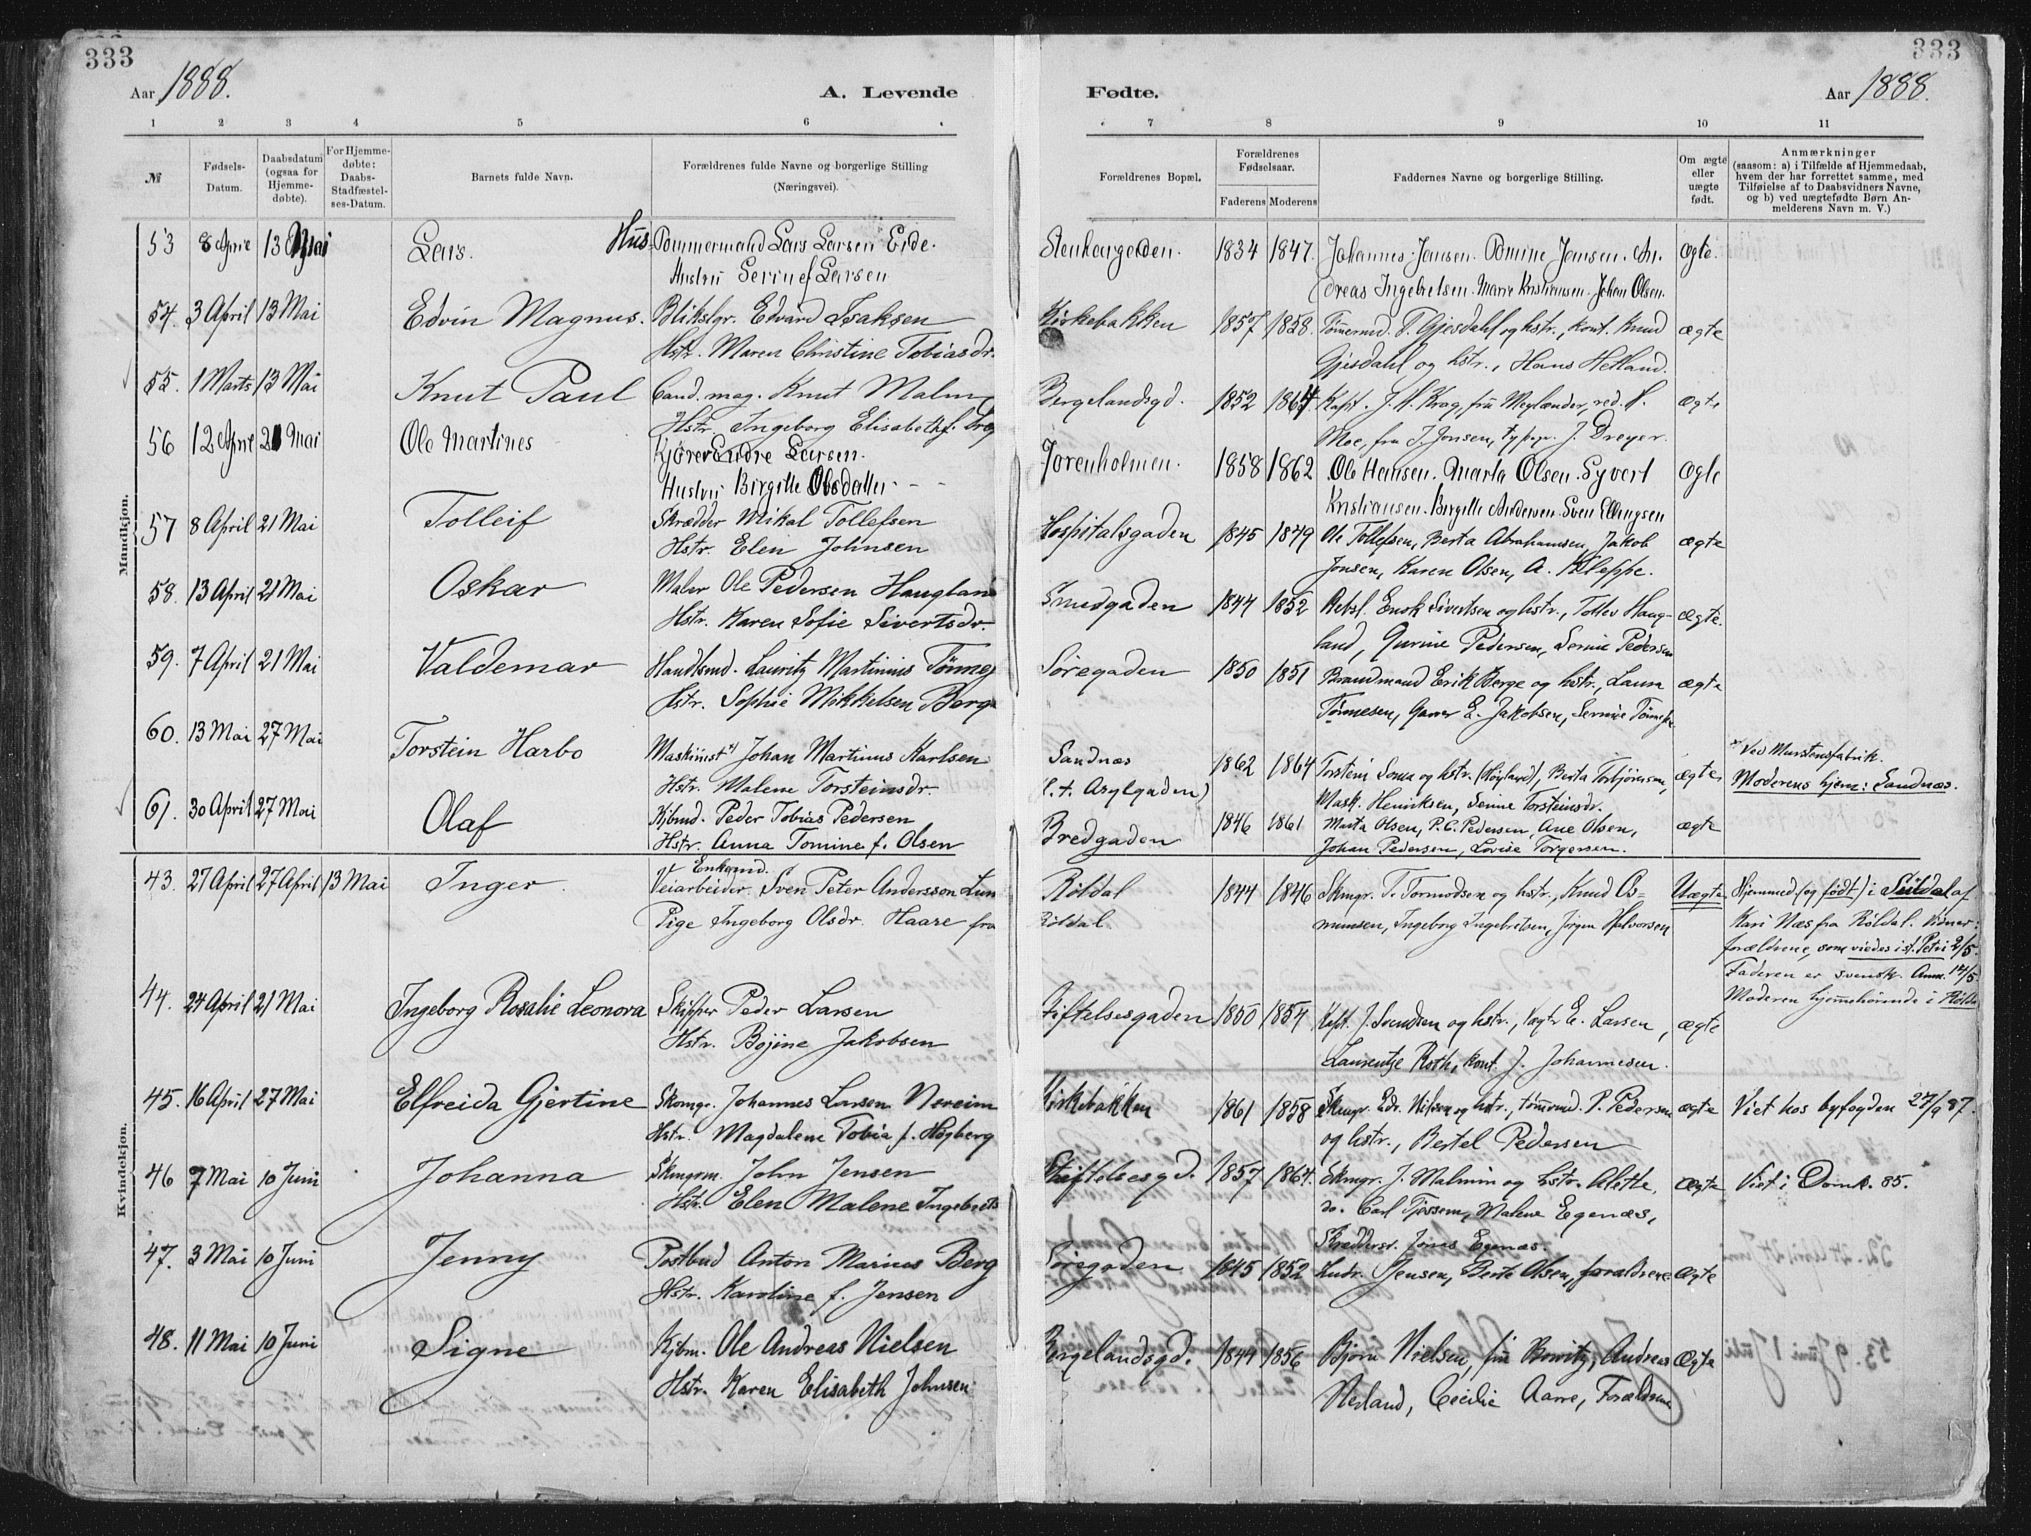 333
333
Aar 1888.
A. Levende
Fødte.
Aar 1888.
1 2 3 4 5 6 7 8 9 10 11
№
Fødsels-Datum.
Daabsdatum (ogsaa for Hjemme-døbte).
For Hjemme-døbte: Daabs-Stadfæstel-ses-Datum.
Barnets fulde Navn.
Forældrenes fulde Navne og borgerlige Stilling (Næringsvei).
Forældrenes Bopæl.
Forældrenes Fødselsaar.
Faderens Moderens
Faddernes Navne og borgerlige Stilling.
Om ægte eller uægte født.
Anmærkninger
(saasom: a) i Tilfælde af Hjemmedaab,
hvem der har forrettet samme, med
Tilføielse af to Daabsvidners Navne,
og b) ved uægtefødte Børn An-
melderens Navn m. V.)
Mandkjøn.
53 8 April 13 Mai Lars. Hus. Tømmermand Lars Larsen Eide. 1834 1847. Johannes Jensen. Tomine Jensen. An- ægte.
Hustru Serine f Larsen
dreas Ingebretsen. Marie Kristiansen. Johan Olsen.
54. 3 April 13 Mai Edvin Magnus. Blikslgr. Edvard Isaksen Kirkebakken 1857 1858. Tømmermd. T. Gjesdahl og hstr., kont. Knud ægte
Hstr. Maren Christine Tobiasdr.
Gjesdahl og hstr., Hans Hetland.
55. 1 Marts 13 Mai Knut Paul Cand. mag. Knut Malm Bergelandsgd. 1852 1864. Kapt. J. H. Krog, fru Meglænder, red. H. ægte
Hstr. Ingeborg Elisabeth f. Krog
Moe, fru J. Jonsen, typogr. J. Dreyer.
56 12 April 21 Mai Ole Martines Kjører Endre Larsen. Jorenholmen. 1858 1862 Ole Hansen. Marta Olsen. Syvert ægte
Hustru Birgitte Olsdatter
Kristiansen. Birgitte Andersen. Sven Ellingsen
57 8 April 21 Mai Tolleif Skrædder Mikal Tollefsen Hospitalsgaden 1845 1849 Ole Tollefsen, Berta Abrahamsen, Jakob ægte
Hstr. Elen Johnsen
Jonsen, Karen Olsen, A. Kleppe.
58. 13 April 21 Mai Oskar Maler Ole Pedersen Haugland Smedgaden 1844 1852 Rebsl. Enok Sivertsen og hstr., Tollev Haug- ægte.
Hstr. Karen Sofie Sivertsdr.
land, Gurine Pedersen, Serine Pedersen
59. 7 April 21 Mai Valdemar Handlsmd. Lauritz Martinius Tønnes Søregaden 1850 1851 Brandmand Erik Berge og hstr., Laura ægte
Hstr. Sophie Mikkelsen Berge
Tønnesen, E. Jakobsen, Serine Tønnes
60. 13 Mai 27 Mai Torstein Harbo Maskinist x) Johan Martinus Karlsen Sandnæs 1862 1864 Torstein Soma og hstr. (Høyland), Berta Torbjørnsen, ægte x Ved Murstensfabrik.
Hstr. Malene Torsteinsdr. (l. t. Asylgaden)
Mask. Henriksen, Serine Torsteinsdr.
Moderens hjem: Sandnæs.
61. 30 April 27 Mai Olaf Kjbmd. Peder Tobias Pedersen Bredgaden 1846 1861 Marta Olsen, P. C. Pedersen, Ane Olsen, ægte
Hstr. Anna Tomine f. Olsen
Johan Pedersen, Lovise Torgersen.
Kvindekjøn.
43. 27 April 27 April 13 Mai Inger Enkemd. Veiarbeider Sven Peter Andersson Lun Røldal 1844 1846 Skmgr. T. Tormodsen og hstr., Knud Os- Uægte Hjemmed. (og født) i Suldal af
Pige Ingeborg Olsdr. Haare fra Røldal.
munsen, Ingeborg Ingebretsen, Jørgen Halvorsen
Kari Næs fra Røldal. Vidner:
forældrene, som viedes i St. Petri 2/5.
Faderen er svensk. Anm. 14/5.
Moderen hjemhørende i Røldal
44. 24 April 21 Mai Ingeborg Rosalie Leonora Skipper Peder Larsen Stiftelsesgaden 1850 1854 Kapt. J. Svendsen og hstr., Vægter E. Larsen, ægte
Hstr. Bojine Jakobsen
Laurentze Roth, kont. J. Johannesen.
45. 16 April 27 Mai Elfreida Gjertine Skomgr. Johannes Larsen Nereim Kirkebakken 1861 1858 Skmgr. Edv. Nilsen og hstr., tømrmd. P. Pedersen ægte Viet hos byfogden 27/9 87.
Hstr. Magdalene Tobia f. Høgberg
og hstr., Bertel Pedersen
46 7 Mai 10 Juni Johanna Skmgrm. John Jensen Stiftelsesgd. 1857 1864. Skmgr. J. Malmin og hstr. Alette, ægte Viet i Domk. 85.
Hstr. Elen Malene Ingebrets
do. Carl Tjossem, Malene Egenæs,
Skræddersv. Jonas Egenæs.
47. 3 Mai 10 Juni Jenny Postbud Anton Marius Berg Søregaden 1845 1852 Jensen, Berte Olsen, forældrene ægte
Hstr. Karoline f. Jensen
48. 11 Mai 10 Juni Signe Kjbm. Ole Andreas Nielsen Bergelandsgd. 1844 1856 Bjørn Nielsen, fru Bowitz, Andreas ægte
Hstr. Karen Elisabeth Johnsen
Nerland, Cecilie Aarre, Forældrene